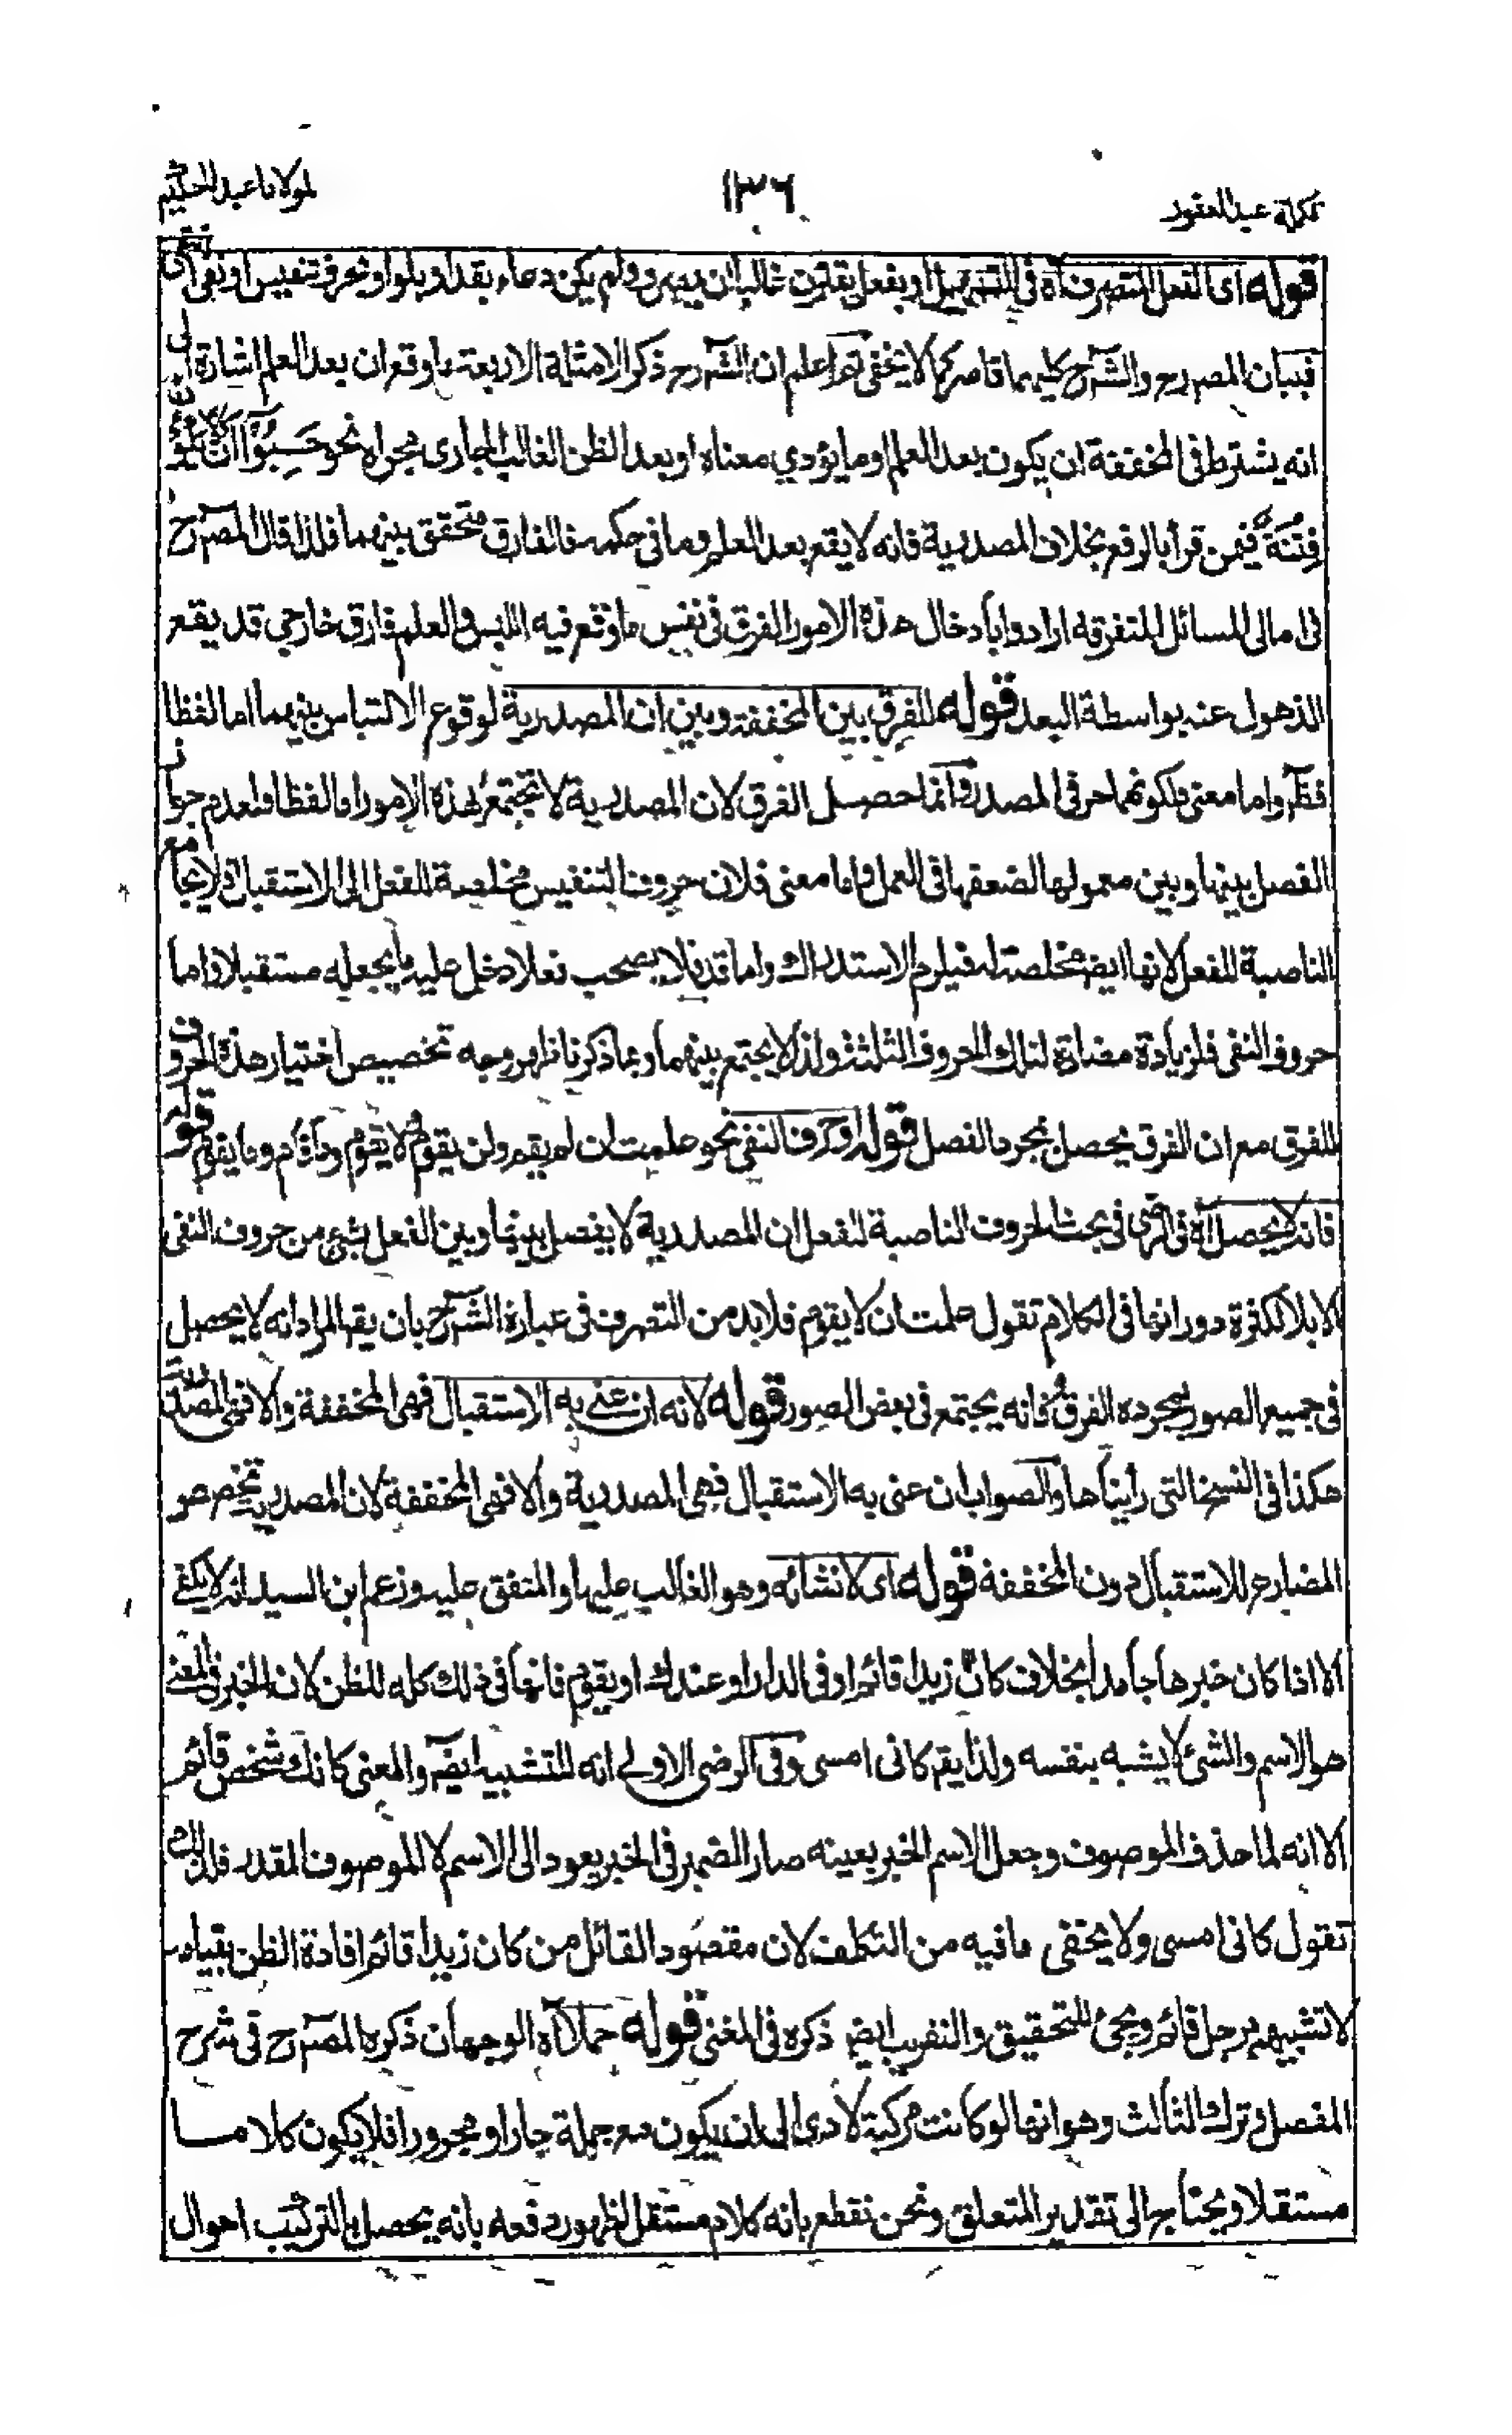 تكملة عبد الغفور
١٣٦
لمولانا عبد الحكيم
قوله اى الفعل المتصرف آه فى التسهيل او بفعل يقترن غالبا ان يصرف ولم يكن دعاء بقد او بلو او بحرف تنفيس او نفى انتهى
فبيان المصرح والشرح كليهما قاصر كما لا يخفى ثم اعلم ان الشرح ذكر الامثلة الاربعة بما وقع ان بعد العلم اشارة الى
انه يشترط فى المخففة ان يكون بعد العلم او ما يؤدي معناه او بعد الظن الغالب الجارى مجراه نحو حَسِبُوْآ اَنْ لَّا تَكُوْنَ
فِتْنَةٌ فيمن قرأ بالرفع بخلاف المصدرية فانه لا يقع بعد العلم وما فى حكمه فالفارق متحقق بينهما فلذا قال المصرح
فى امالى المسائل المتفرقه ارادوا بادخال هذه الامور الفرق فى نفس ما وقع فيه اللبس والعلم فارق خارجي قد يقع
الذهول عنه بواسطة البعد قوله للفرق بين المخففة وبين ان المصدرية لوقوع الالتباس بينهما اما لفظا
فظهر واما معنى فلكونهما حرفى المصدر وانما حصل الفرق لان المصدرية لا تجتمع بهذه الامور اما لفظا فلعدم جواز
الفصل بينها وبين معمولها لضعفها فى العمل واما معنى فلان حروف التنفيس مخلصة للفعل الى الاستقبال فلا يجامع
الناصبة للفعل لانها ايضا مخلصة له فيلزم الاستدراك واما قد فلا يصحب فعلا دخل عليه ما يجعله مستقبلا واما
حروف النفى فلزيادة مضادة لتلك الحروف الثلثة ولذا لا يجتمع بينهما وبما ذكرنا ظهر وجه تخصيص اختيار هذه الحروف
للفرق مع ان الفرق يحصل بمجرد الفصل قوله او حرف النفى نحو علمت ان لم يقم ولن يقوم ولا يقوم وما قام وما يقوم قوله
فانه لا يحصل آه فى الرضى فى بحث الحروف الناصبة للفعل ان المصدرية لا يفصل بينها وبين الفعل بشئ من حروف النفى
الا بلا لكثرة دورانها فى الكلام تقول علمت ان لا يقوم فلا بد من التصرف فى عبارة الشرح بان يقم المراد انه لا يحصل
فى جميع الصور بمجرده الفرق فانه يجتمع فى بعض الصور قوله لانه ان عنى به الاستقبال فهى المخففة والا فهى المصدرية
هكذا فى النسخ التى رأيناها والصواب ان عنى به الاستقبال فهى المصدرية والا فهى المخففة لان المصدرية تخصص
المضارع للاستقبال دون المخففة قوله اى لانشائه وهو الغالب عليها والمتفق عليه وزعم ابن السيد انه لا يكون
الا اذا كان خبرها جامدا بخلاف كأنّ زيدا قائم او فى الدار او عندك او يقوم فانها فى ذلك كله للظن لان الخبر فى المعنى
هو الاسم والشئ لا يشبه بنفسه ولذا يقم كانى امسى وفى الرضى الاولى انه للتشبيه ايضا والمعنى كانك شخص قائم
الا انه لما حذف الموصوف وجعل الاسم الخبر بعينه صار الضمير فى الخبر يعود الى الاسم لا للموصوف المقدر فلذلك
تقول كانى امسى ولا يخفى ما فيه من التكلف لان مقصود القائل من كان زيدا قائم افادة الظن بقيامه
لا تشبيهه برجل قائم ويجئ للتحقيق والتقريب ايضا ذكره فى المغنى قوله حملا آه الوجهان ذكره المصرح فى شرح
المفصل وترك الثالث وهو انها لو كانت مركبة لادى الى ان يكون مع جملة جارا ومجرورا فلا يكون كلاما
مستقلا ويحتاج الى تقدير المتعلق ونحن نقطع بانه كلام مستقل لظهور دفعه بانه يحصل بالتركيب احوال